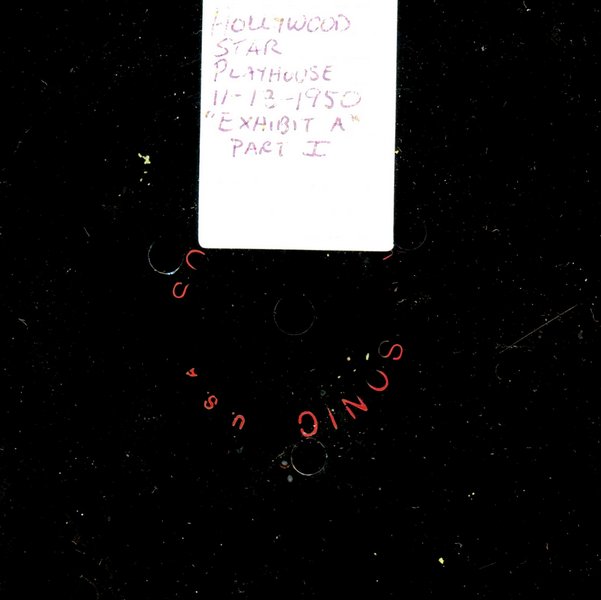 HOLLYWOOD
STAR
PLAYHOUSE
11-13-1950
"EXHIBIT A"
PART I
USA